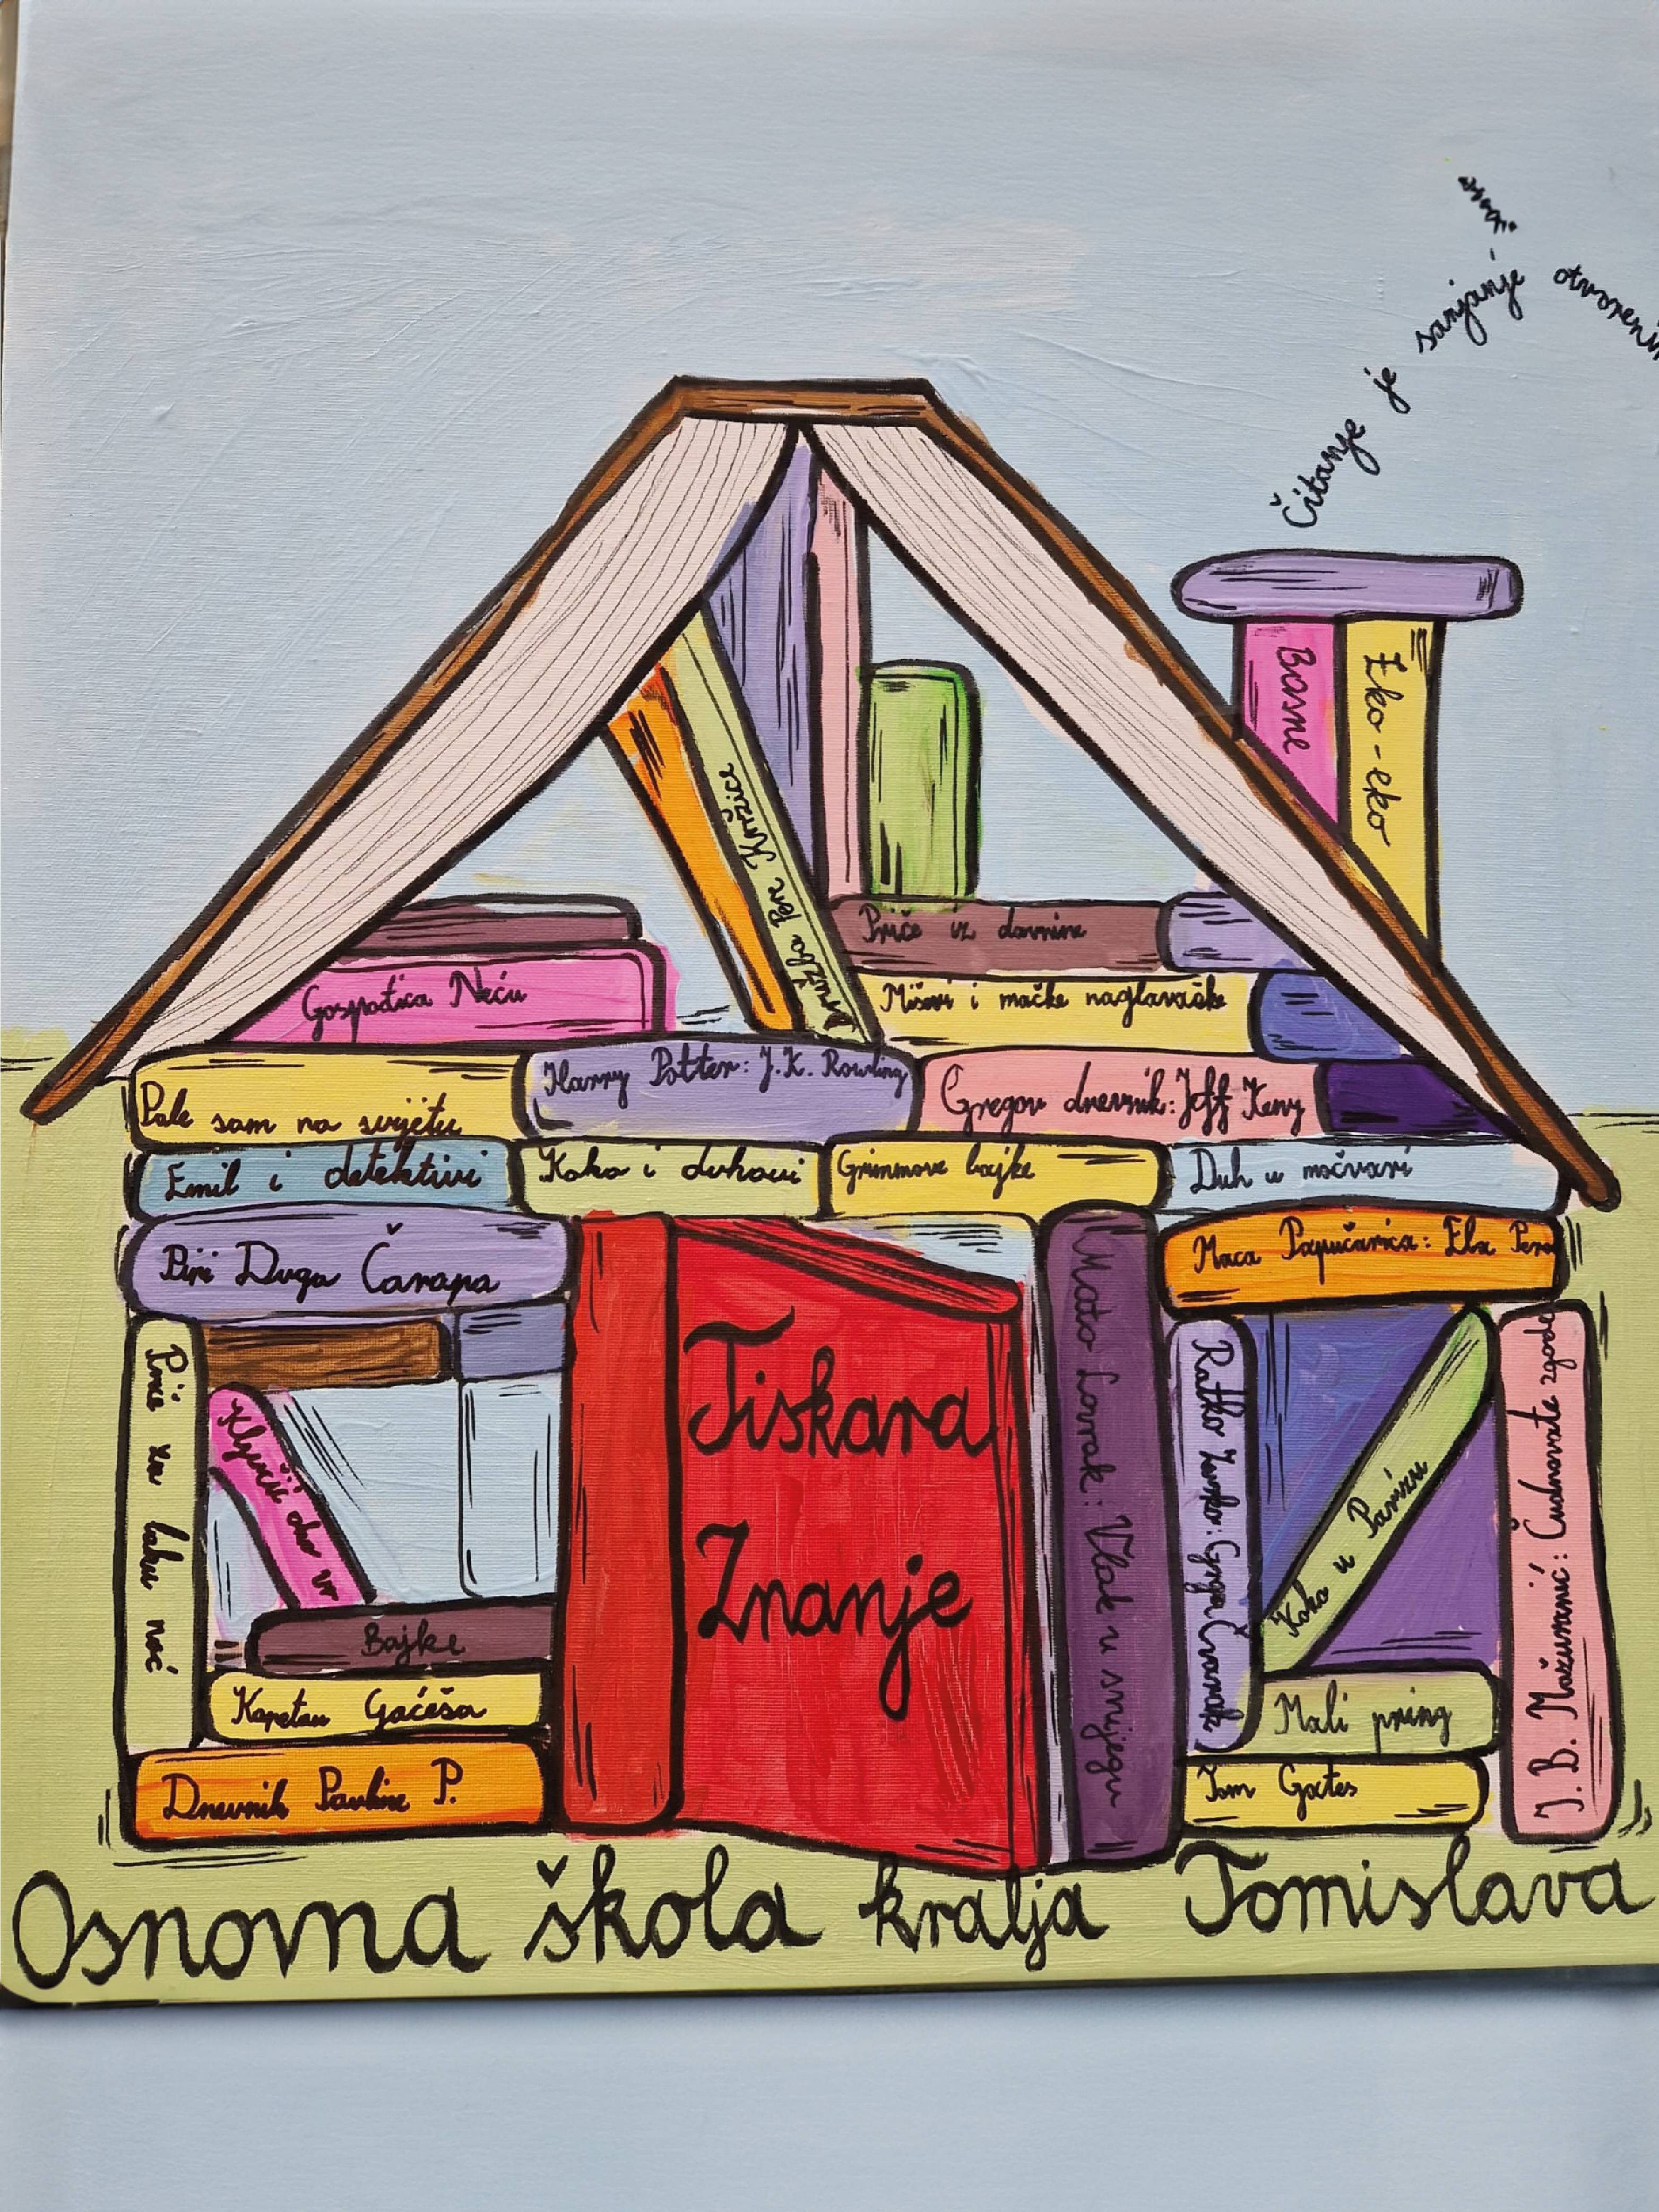 Čitanje je sanjanje otvorenih
Basne
Eko-eko
Družba Pere Kvržice
Priče iz davnine
Gospođica Neću
Miševi i mačke naglavačke
Pale sam na svijetu
Harry Potter: J.K. Rowling
Gregov dnevnik: Jeff Keny
Emil i detektivi
Koko i duhovi
Grimmove bajke
Duh u močvari
Pipi Duga Čarapa
Maca Papučarica: Ela Pero
Tiskara
Znanje
Mato Lovrak: Vlak u snijegu
Priče za laku noć
Ključić oko vr
Bajke
Kapetan Gaćeša
Dnevnik Pauline P.
Ratko Zvrko: Grga Čvarak
Koko u Parizu
Mali princ
Tom Gates
J. B. Mažuranić: Čudnovate zgode
Osnovna škola kralja Tomislava